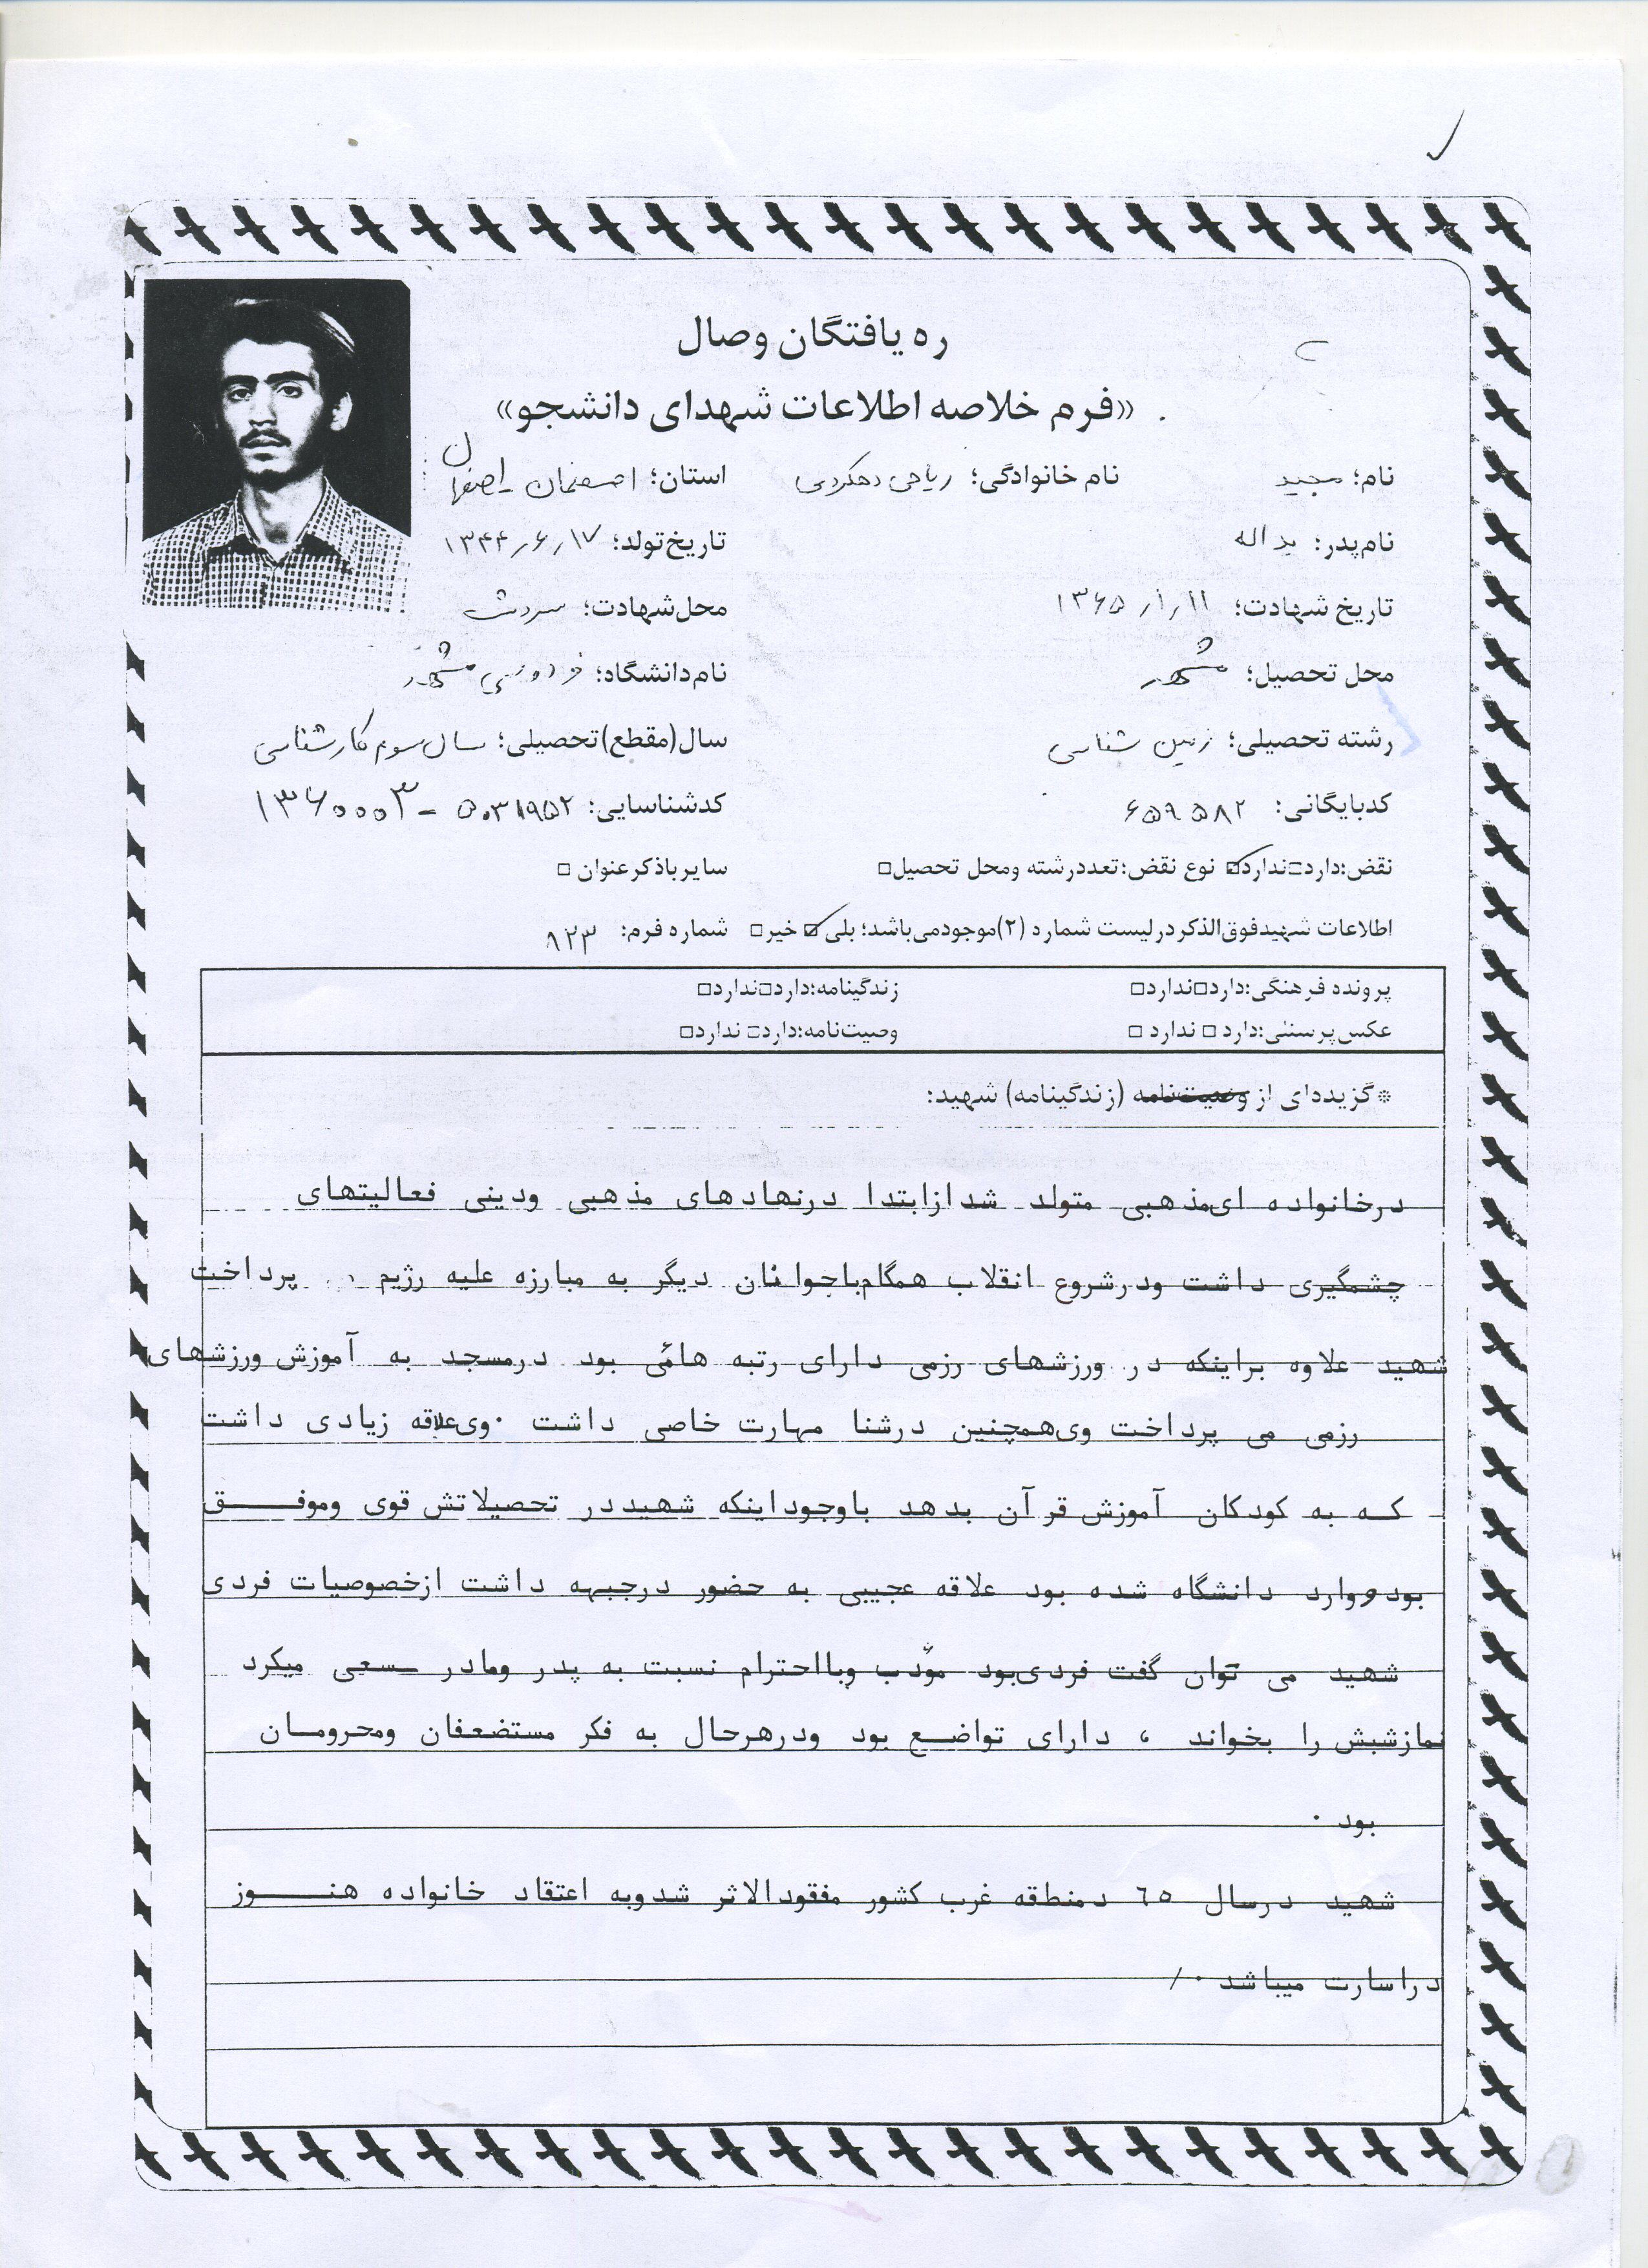 ره یافتگان وصال
«فرم خلاصه اطلاعات شهدای دانشجو»
نام؛ مجید نام خانوادگی؛ ریاحی دهکردی استان؛ اصفهان - اصفهان
نام‌پدر؛ یداله تاریخ‌تولد؛ ۱۳۴۴٫۶٫۱۷
تاریخ شهادت؛ ۱۳۶۵٫۱٫۱۱ محل‌شهادت؛ سردشت
محل تحصیل؛ مشهد نام‌دانشگاه؛ فردوسی مشهد
رشته تحصیلی؛ زمین شناسی سال(مقطع)تحصیلی؛ سال سوم کارشناسی
کدبایگانی: ۶۵۹۵۸۲ کدشناسایی؛ ۵۰۳۱۹۵۲ - ۱۳۶۰۰۰۳
نقض؛دارد□ندارد☑ نوع نقض؛تعددرشته ومحل تحصیل□ سایرباذکرعنوان □
اطلاعات شهیدفوق‌الذکردرلیست شماره (۲)موجودمی‌باشد؛ بلی☑ خیر□ شماره فرم: ۸۲۳
پرونده فرهنگی؛دارد□ندارد□ زندگینامه؛دارد□ندارد□
عکس‌پرسنلی؛دارد □ ندارد □ وصیت‌نامه؛دارد□ ندارد□
*گزیده‌ای از وصیت‌نامه (زندگینامه) شهید:
درخانواده ای‌مذهبی متولد شدازابتدا درنهادهای مذهبی ودینی فعالیتهای
چشمگیری داشت ودرشروع انقلاب همگام‌باجوانان دیگر به مبارزه علیه رژیم پرداخت
شهید علاوه براینکه در ورزشهای رزمی دارای رتبه هائی بود درمسجد به آموزش ورزشهای
رزمی می پرداخت وی‌همچنین درشنا مهارت خاصی داشت ۰وی‌علاقه زیادی داشت
کـه به کودکان آموزش قرآن بدهد باوجوداینکه شهیددر تحصیلاتش قوی وموفـــق
بودووارد دانشگاه شده بود علاقه عجیبی به حضور درجبهه داشت ازخصوصیات فردی
شهید می توان گفت فردی‌بود مؤدب وبااحترام نسبت به پدر ومادر سعی میکرد
نمازشبش را بخواند ، دارای تواضـع بود ودرهرحال به فکر مستضعفان ومحرومـان
بود ۰
شهید درسال ٦٥ دمنطقه غرب کشور مفقودالاثر شدوبه اعتقاد خانواده هنـــوز
دراسارت میباشد ۰/